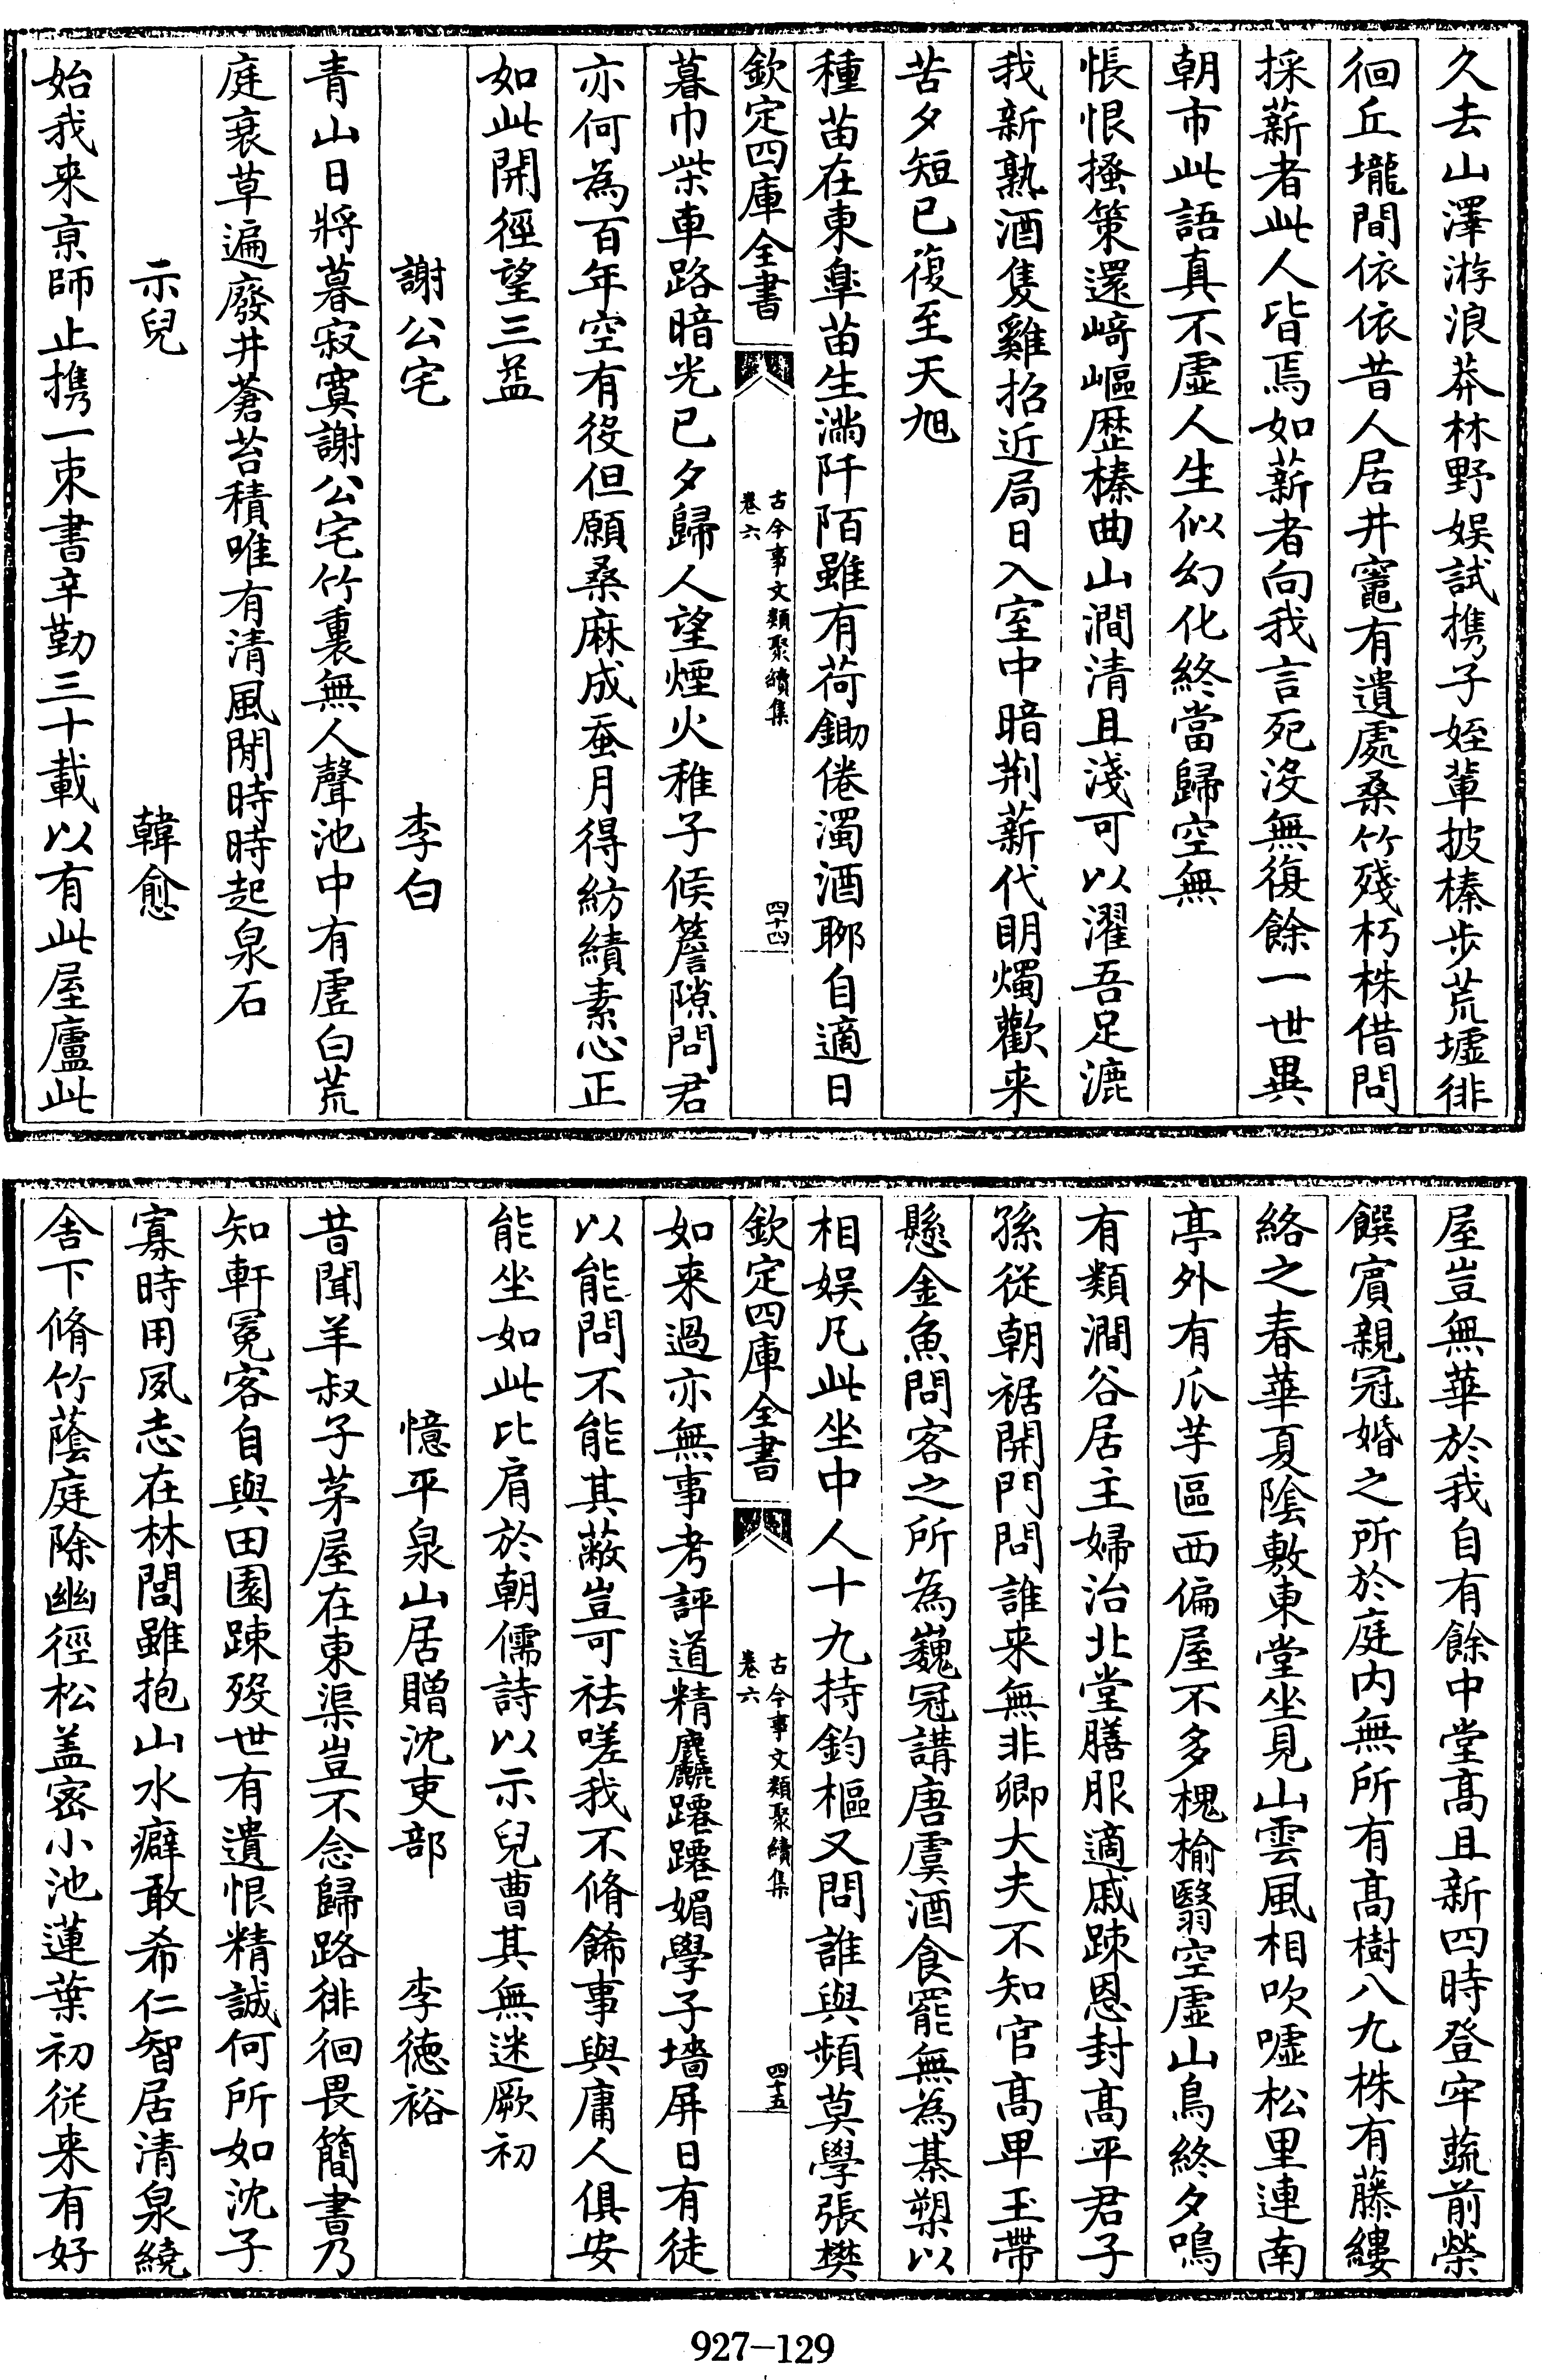 久去山澤游浪莽林野娯試携子姪軰披榛步荒墟徘
徊丘壠間依依昔人居井竈有遺處桑竹殘朽株借問
採薪者此人皆焉如薪者向我言死没無復餘一世異
朝市此語真不虚人生似幻化終當歸空無
悵恨搔策還﨑嶇歴榛曲山澗清且淺可以濯吾足漉
我新熟酒隻雞招近局日入室中暗荆薪代明燭歡来
苦夕短已復至天旭
種苗在東臯苗生滿阡陌雖有荷鋤倦濁酒聊自適日
欽定四庫全書
古今事文類聚續集
卷六
四十四
暮巾柴車路暗光已夕歸人望煙火稚子候簷隙問君
亦何為百年空有役但願桑麻成蚕月得紡績素心正
如此開徑望三益
謝公宅 李白
青山日將暮寂寞謝公宅竹裏無人聲池中有虚白荒
庭衰草遍廢井蒼苔積唯有清風閒時時起泉石
示兒 韓愈
始我来京師止携一束書辛勤三十載以有此屋廬此
屋豈無華於我自有餘中堂髙且新四時登牢蔬前榮
饌賓親冠婚之所於庭内無所有髙樹八九株有藤縷
絡之春華夏隂敷東堂坐見山雲風相吹嘘松里連南
亭外有瓜芋區西偏屋不多槐榆翳空虚山鳥終夕鳴
有類澗谷居主婦治北堂膳服適戚踈恩封髙平君子
孫從朝裾開門問誰来無非卿大夫不知官髙卑玉帶
懸金魚問客之所為巍冠講唐虞酒食罷無為棊槊以
相娱凡此坐中人十九持鈞樞又問誰與頻莫學張樊
欽定四庫全書
古今事文類聚續集
卷六
四十五
如来過亦無事考評道精麤躚躚媚學子墻屏日有徒
以能問不能其蔽豈可祛嗟我不脩飾事與庸人俱安
能坐如此比肩於朝儒詩以示兒曹其無迷厥初
憶平泉山居贈沈吏部 李德裕
昔聞羊叔子茅屋在東渠豈不念歸路徘徊畏簡書乃
知軒冕客自與田園踈歿世有遺恨精誠何所如沈子
寡時用夙志在林閭雖抱山水癖敢希仁智居清泉繞
舍下脩竹蔭庭除幽徑松盖密小池蓮葉初從来有好
927-129